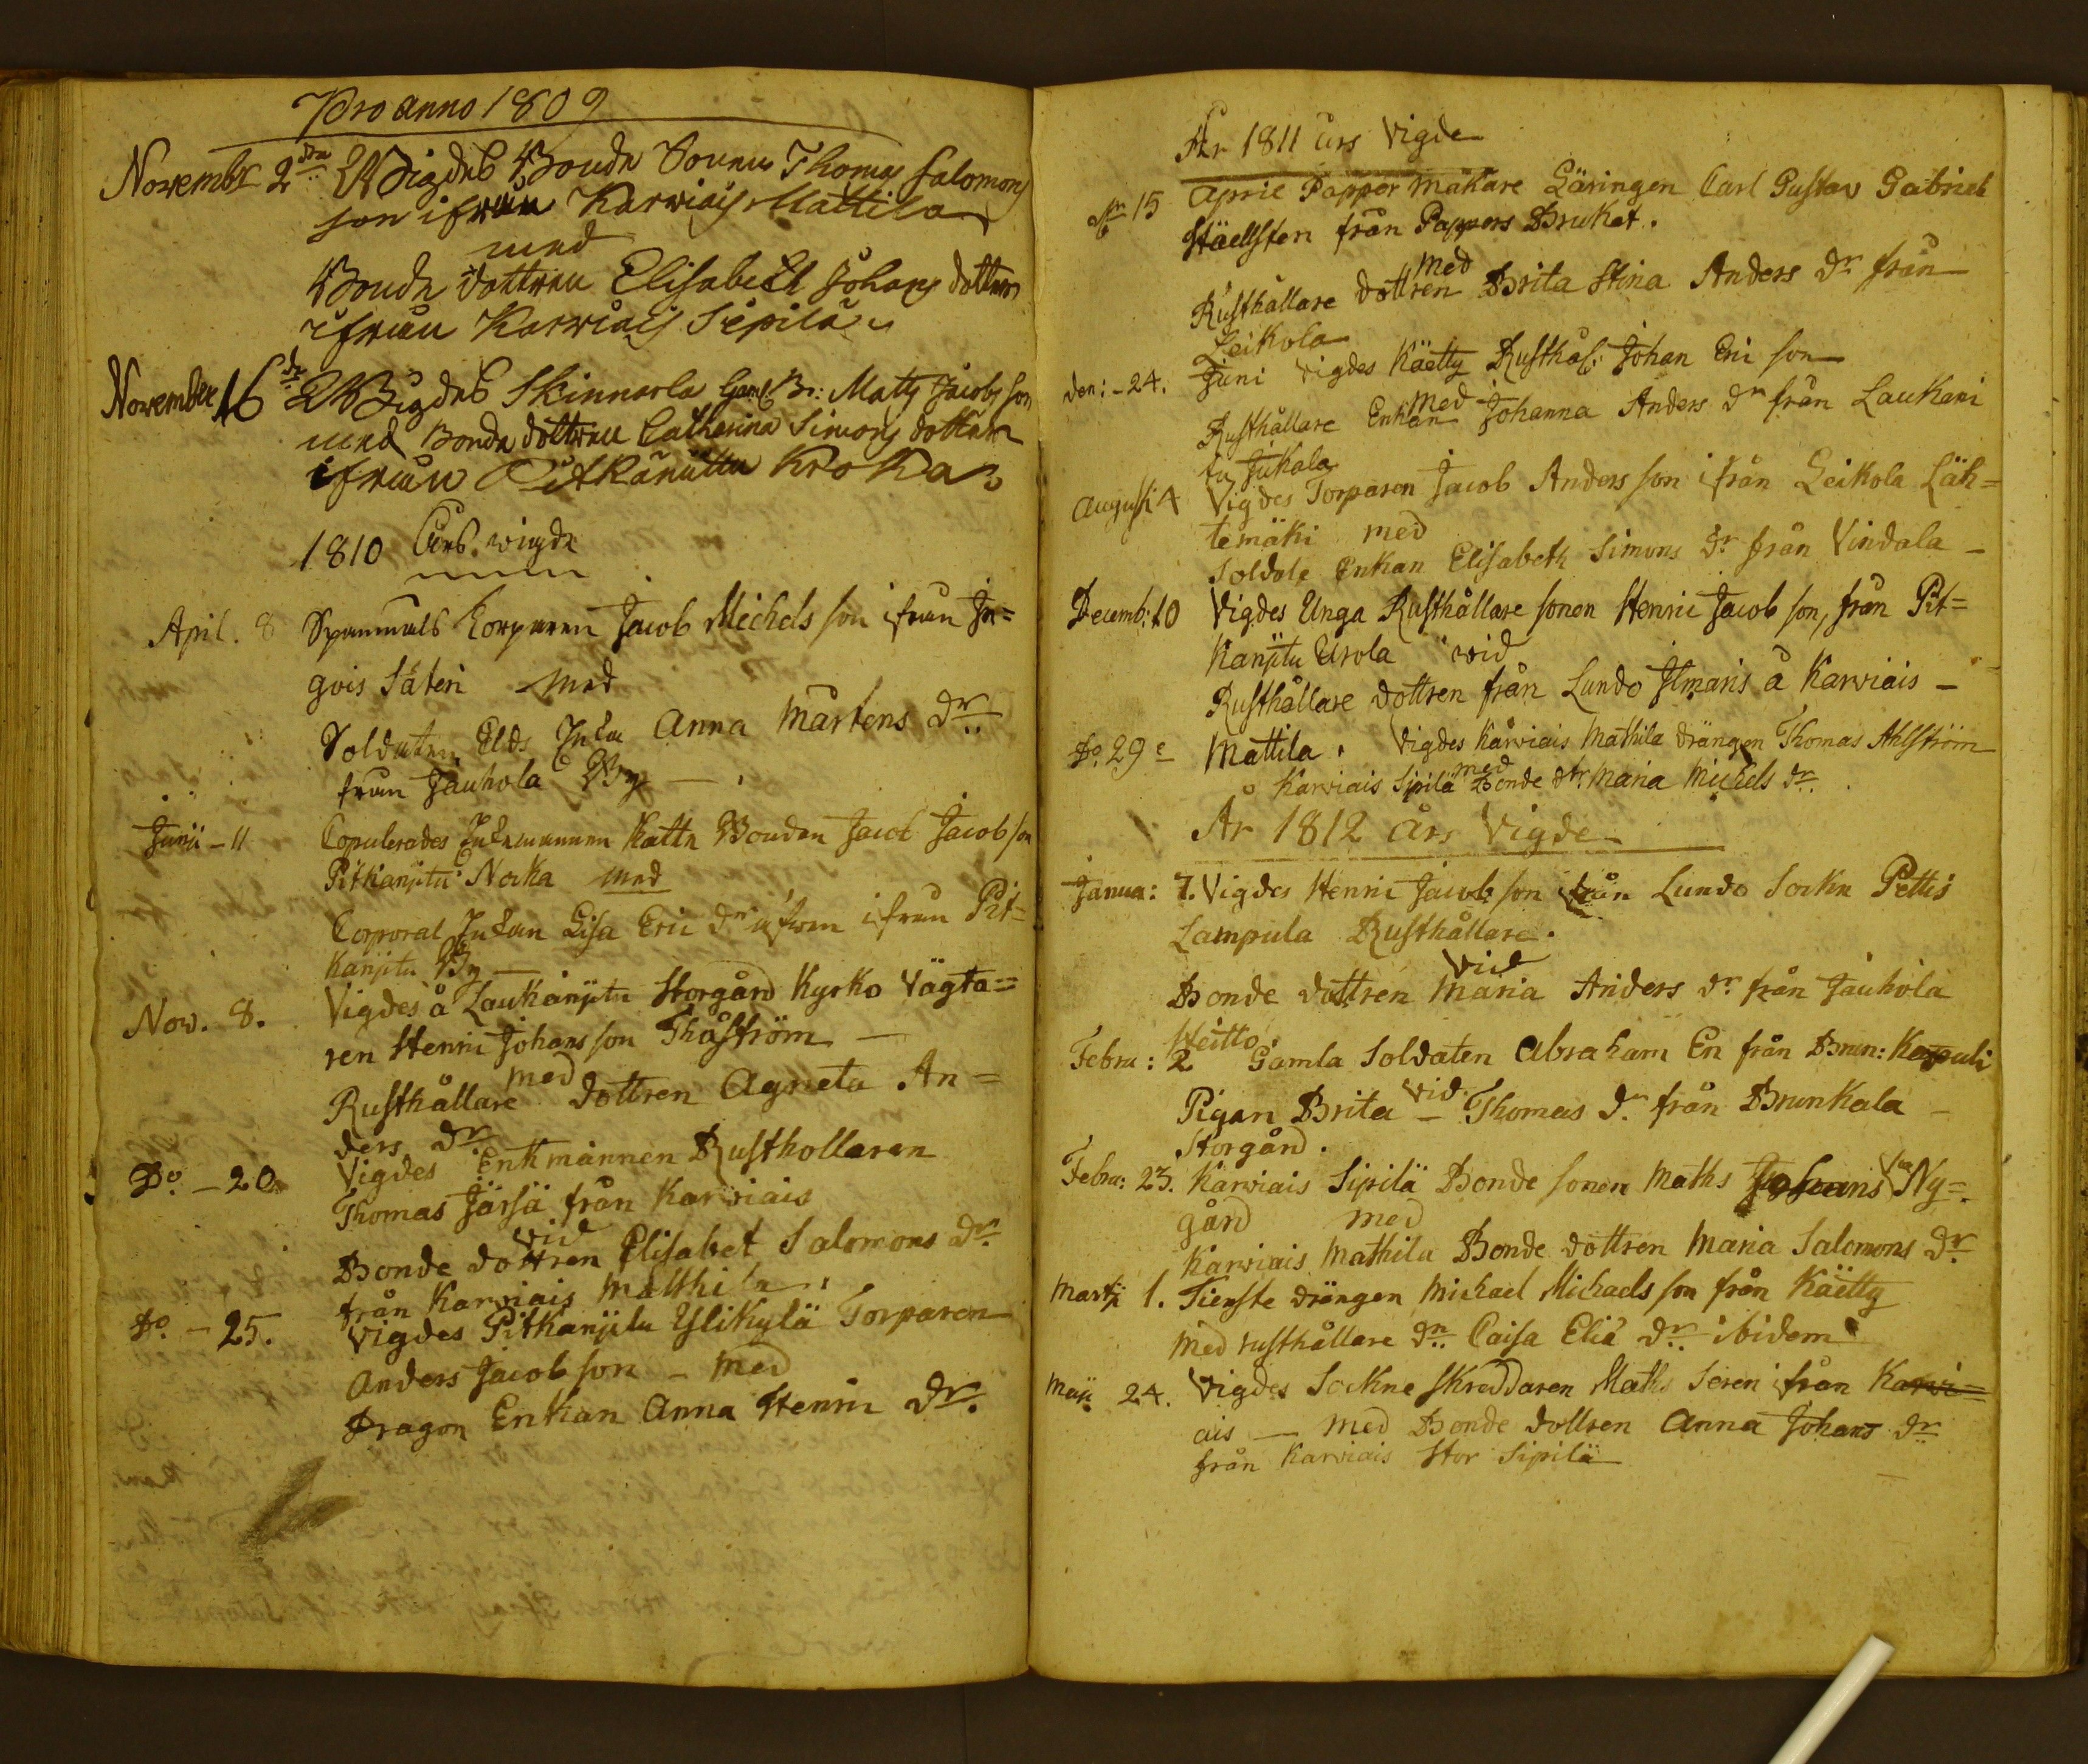 Pro anno 1809
Novembr 2dra Wigdes Bonde Sonen Thomas Salomons
son ifrån Karviais Mattila
med
Bonde dottren Elisabeth Johans dotter
ifrån Karviais Sipilä
November 16de Wigdes Skinnarla Gaml Br: Matts Jacobs son
med Bonde dottren Catharina Simons dotter
ifrån Pitkänittu Kroka
1810 Års wigde
April. 8 Spanmåls Torparen Jacob Michels son ifrån In=
gois Säteri med
Soldaten Elds Enka Anna Mårtens Dr
från Jauhola By
Junii - 11 Copulerades Enkemannen Skatte Bonden Jacob Jacob son
Pitkänjitu Nocka med
Corporal Enkan Lisa Eric Dr ifrån Pit=
känjitu By
Nov. 8. Vigdes å Laukänjitu Storgård Kyrko Vägta=
ren Henric Johans son Thåström
med
Rusthållare dottren Agneta An=
ders Dr
Do - 20. Vigdes Enkmannen Rusthollaren
Thomas Järsä från Karviais
vid
Bonde dottren Elisabet Salomons Dr
från Karviais Matthila
Do - 25. Vigdes Pitkänjitu Ylikylä Torparen
Anders Jacob son - med
Dragon Enkan Anna Henric Dr.
År 1811 års Vigde
15 April Papper makare Läringen Carl Gustav Gabriel
Häellsten från Pappers Bruket.
med
Rusthållare dottren Brita Stina Anders Dr från
Leikola
den: - 24. Juni vigdes Käetty Rusthål: Johan Eric son
med
Rusthållare Enkan Johanna Anders Dr från Laukani
tu Jukala
Augusti 4 Vigdes Torparen Jacob Anders son ifrån Leikola Läh=
temäki med
Soldate Enkan Elisabeth Simons Dr från Vindala -
Decemb: 10 Vigdes Unga Rusthållare sonen Henric Jacob son, från Pit=
känjitu Urola wid
Rusthållare dottren från Lundo Ilmaris å Karviais -
Do 29 Mattila. Vigdes Karviais Mathila drängen Thomas Ahlström
med
Karviais Sipilä Bonde dtr Maria Michels dr.
År 1812 års Vigde
Janua: 7. Vigdes Henric Jacob son från Lundo Sockn Pettis
Lampula Rusthållare.
vid
Bonde dottren Maria Anders dr från Jauhola
Heitto.
Febru: 2 Gamla Soldaten Abraham En från Brun: Karpuli
vid
Pigan Brita - Thomas dr från Brunkala -
Storgård.
Febru: 23. Karviais Sipilä Bonde sonen Maths Johans Ny=
gård med
Karviais Mathila Bonde dottren Maria Salomons Dr
Martji 1. Tienste drängen Michael Michaels son från Käetty
med rusthållare dn Caisa Eliæ dr. ibidem
Maji 24. Vigdes Sockne Skreddaren Maths Seren ifrån Karvi=
ais - med Bonde dottren Anna Johans dr
från Karviais Stor Sipilä